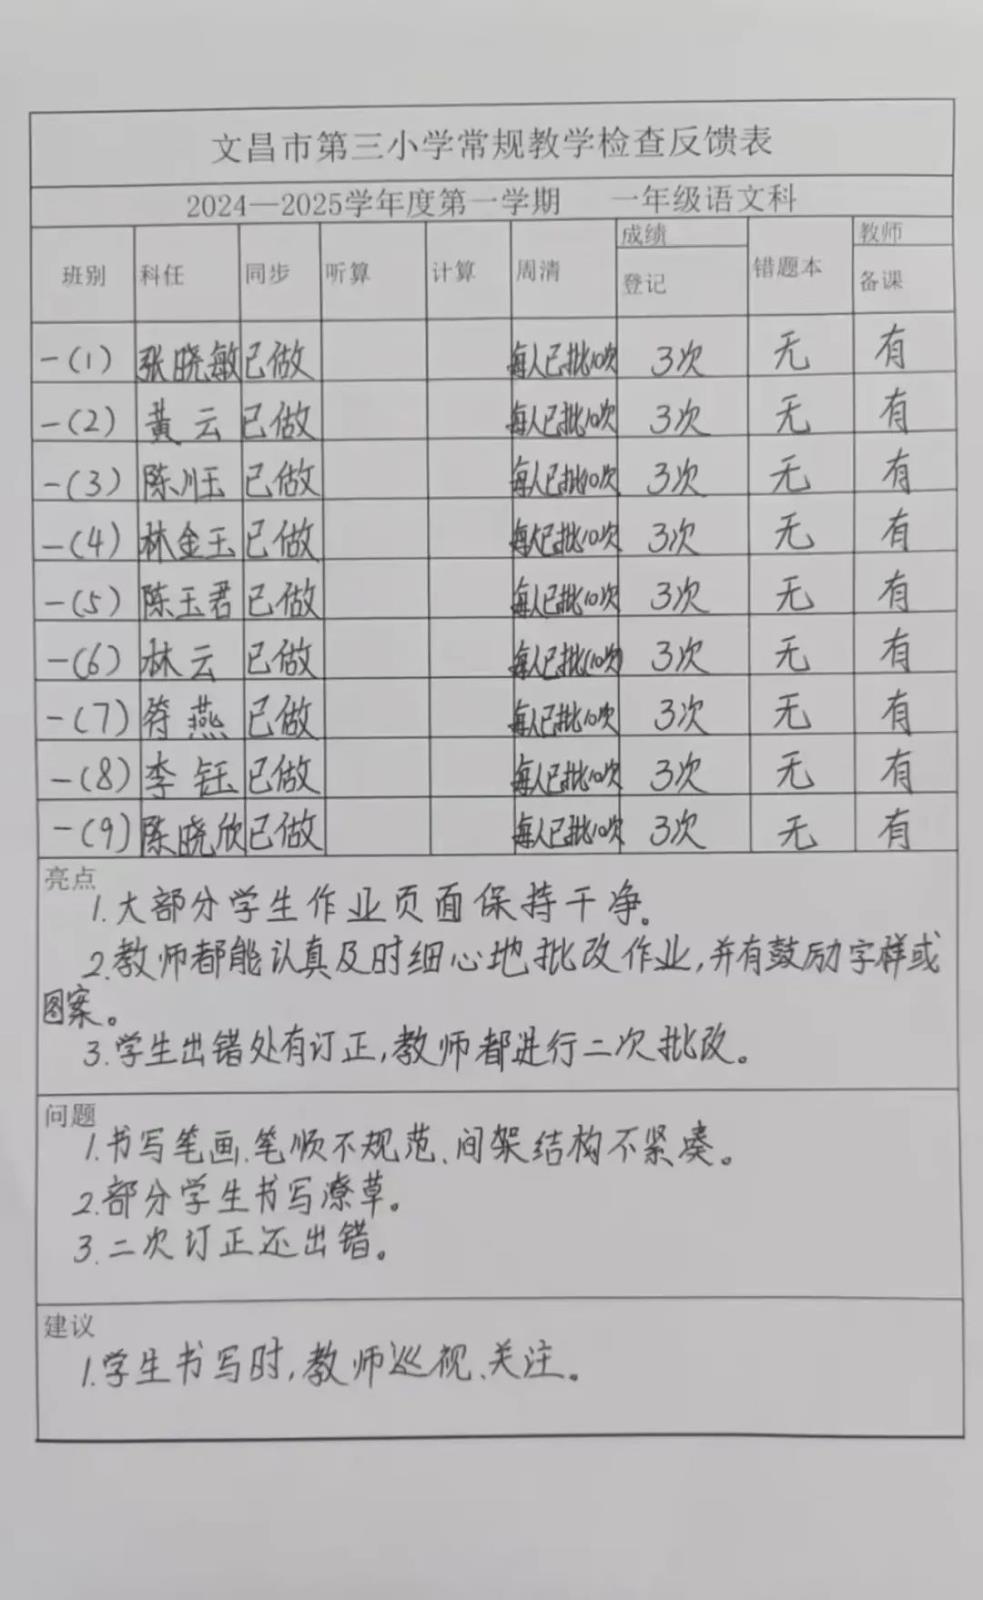 文昌市第三小学常规教学检查反馈表
2024—2025学年度第一学期 一年级语文科
班别 科任 同步 听算 计算 周清 成绩登记 错题本 教师备课
一(1) 张晓敏 已做 每人已批10次 3次 无 有
一(2) 黄云 已做 每人已批10次 3次 无 有
一(3) 陈川玉 已做 每人已批10次 3次 无 有
一(4) 林金玉 已做 每人已批10次 3次 无 有
一(5) 陈玉君 已做 每人已批10次 3次 无 有
一(6) 林云 已做 每人已批10次 3次 无 有
一(7) 符燕 已做 每人已批10次 3次 无 有
一(8) 李钰 已做 每人已批10次 3次 无 有
一(9) 陈晓欣 已做 每人已批10次 3次 无 有
亮点
1.大部分学生作业页面保持干净。
2.教师都能认真及时细心地批改作业,并有鼓励字样或
图案。
3.学生出错处有订正,教师都进行二次批改。
问题
1.书写笔画、笔顺不规范、间架结构不紧凑。
2.部分学生书写潦草。
3.二次订正还出错。
建议
1.学生书写时,教师巡视、关注。